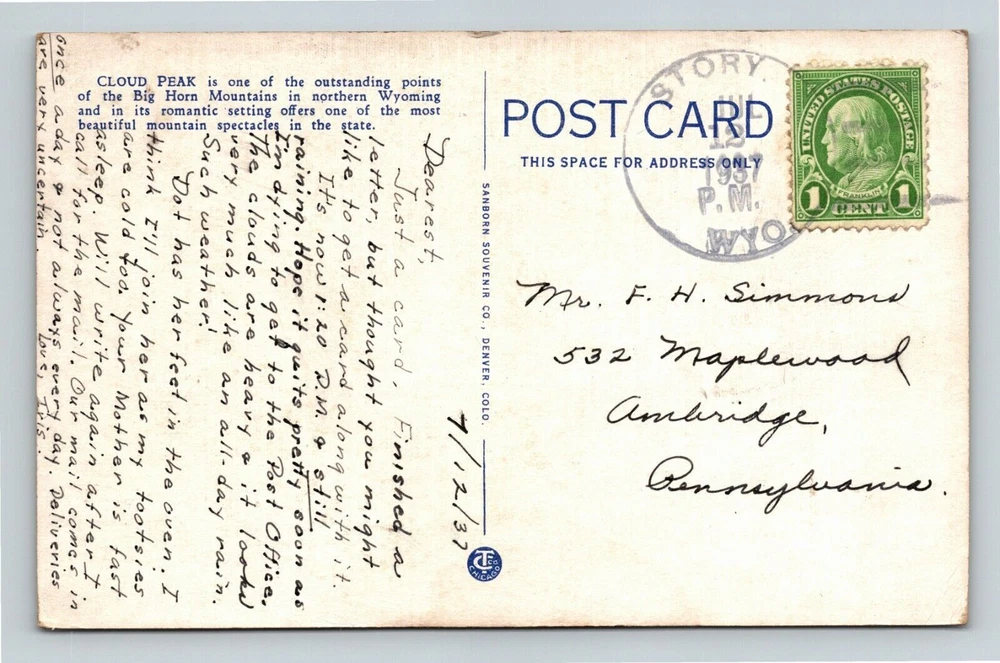 CLOUD PEAK is one of the outstanding points
of the Big Horn Mountains in northern Wyoming
and in its romantic setting offers one of the most
beautiful mountain spectacles in the state.
POST CARD
THIS SPACE FOR ADDRESS ONLY
STORY.
JUL
12
1937
P.M.
WYO.
UNITED STATES POSTAGE
FRANKLIN
1 CENT 1
Mr. F. H. Simmons
532 Maplewood
Ambridge,
Pennsylvania.
SANBORN SOUVENIR CO., DENVER, COLO.
CT CO
CHICAGO
7/12/37
Dearest,
Just a card. Finished a
letter, but thought you might
like to get a card along with it.
It's now 1:20 P.M. & still
raining. Hope it quits pretty soon as
I'm dying to get to the Post Office.
The clouds are heavy & it looks
very much like an all-day rain.
Such weather!
Dot has her feet in the oven. I
think I'll join her as my tootsies
are cold too. Your Mother is fast
asleep. Will write again after I
call for the mail. Our mail comes in
once a day & not always every day. Deliveries
are very uncertain. Love,